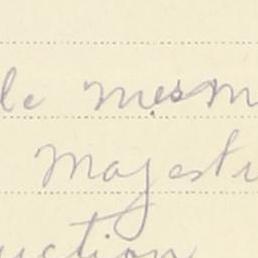 le mesm
Majesti
uction